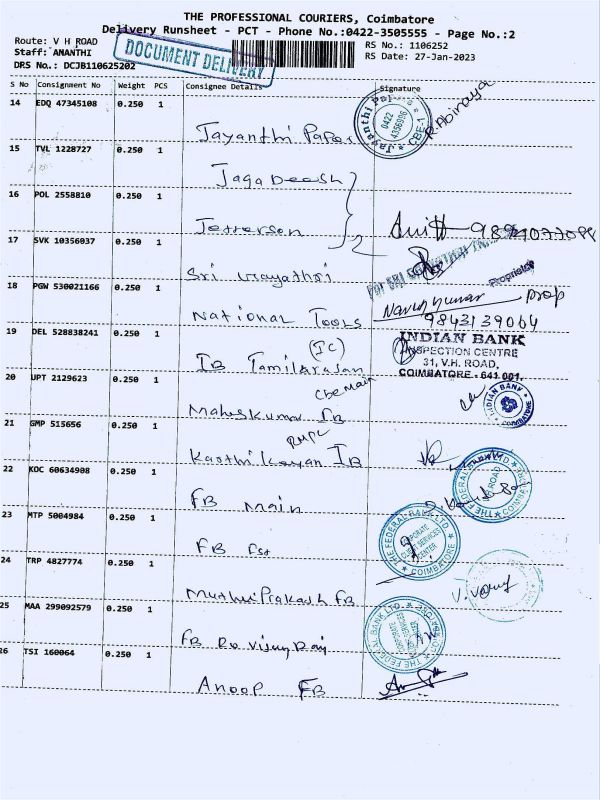 THE PROFESSIONAL COURIERS, Coimbatore
Delivery Runsheet - PCT - Phone No.:0422-3505555 - Page No.:2
Route: V H ROAD
Staff: ANANTHI
DRS No.: DCJB110625202
DOCUMENT DELIVERY
RS No.: 1106252
RS Date: 27-Jan-2023
S No Consignment No Weight PCS Consignee Details Signature
14 EDQ 47345108 0.250 1
Jayanthi Papers
Jayanthi
0422
4356906
CBE-1
R. Abinaya
15 TVL 1228727 0.250 1
Jagadeesh
16 POL 2558810 0.250 1
Jefferson 2
17 SVK 10356037 0.250 1
Sri
Proprietor
18 PGW 530021166 0.250 1
National Tools
Prop
9843139064
19 DEL 528838241 0.250 1
IB Tamilarasan (IC)
INDIAN BANK
INSPECTION CENTRE
31, V.H. ROAD,
COIMBATORE - 641 001.
20 UPT 2129623 0.250 1
Maheskumar IB Cbe Main
INDIAN BANK
COIMBATORE
21 GMP 515656 0.250 1
Karthikayan IB
22 KDC 60634908 0.250 1
FB Main
THE FEDERAL BANK LTD
ROAD
COIMBATORE
23 MTP 5004984 0.250 1
FB
THE FEDERAL BANK LTD.
CORPORATE
SERVICES
CENTER
COIMBATORE
24 TRP 4827774 0.250 1
MuthuPrakash FB
25 MAA 299092579 0.250 1
FB Ro Vijay Raj
THE FEDERAL BANK LTD.
26 TSI 160064 0.250 1
Anoop FB